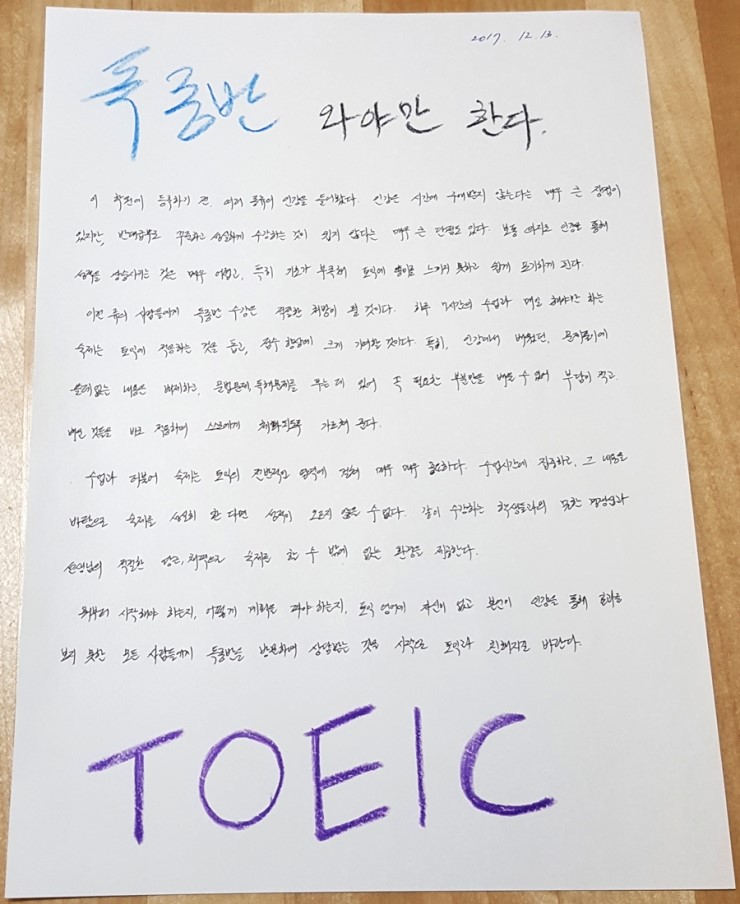 2017. 12. 13.
독종반 와야만 한다.
이 학원에 등록하기 전, 여러 종류의 인강을 들어봤다. 인강은 시간에 구애받지 않는다는 매우 큰 장점이
있지만, 반대급부로 꾸준하고 성실하게 수강하는 것이 쉽지 않다는 매우 큰 단점도 있다. 보통 의지로 인강을 통해
성적을 상승시키는 것은 매우 어렵고, 특히 기초가 부족해 토익에 흥미를 느끼지 못하고 쉽게 포기하게 된다.
이런 류의 사람들에게 독종반 수강은 적절한 희망이 될 것이다. 하루 7시간의 수업과 매일 해야만 하는
숙제는 토익에 적응하는 것을 돕고, 점수 향상에 크게 기여할 것이다. 특히, 인강에서 배웠던, 문제풀이에
쓸데없는 내용은 배제하고, 문법문제, 독해문제를 푸는 데 있어 꼭 필요한 부분만을 배울 수 있어 부담이 적고,
배운 것들을 바로 적용하며 스스로에게 체화되도록 가르쳐 준다.
수업과 더불어 숙제는 토익의 전반적인 영역에 걸쳐 매우 매우 중요하다. 수업시간에 집중하고, 그 내용을
바탕으로 숙제를 성실히 한다면 성적이 오르지 않을 수 없다. 같이 수강하는 학생들과의 묘한 경쟁심과
선생님의 적절한 당근, 채찍으로 숙제를 할 수 밖에 없는 환경을 제공한다.
뭐부터 시작해야 하는지, 어떻게 계획을 짜야 하는지, 토익 영어에 자신이 없고 본인이 인강을 통해 효과를
보지 못한 모든 사람들에게 독종반을 방문하여 상담받는 것을 시작으로 토익과 친해지길 바란다.
TOEIC